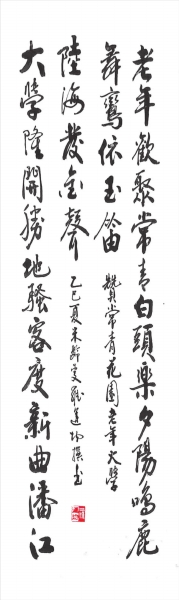 老年歡聚常青白頭樂夕陽鳴鹿
舞鸞依玉笛
贊常青花園老年大學
陸海發金聲
乙巳夏
撰書
大學隆開勝地騷客度新曲潘江